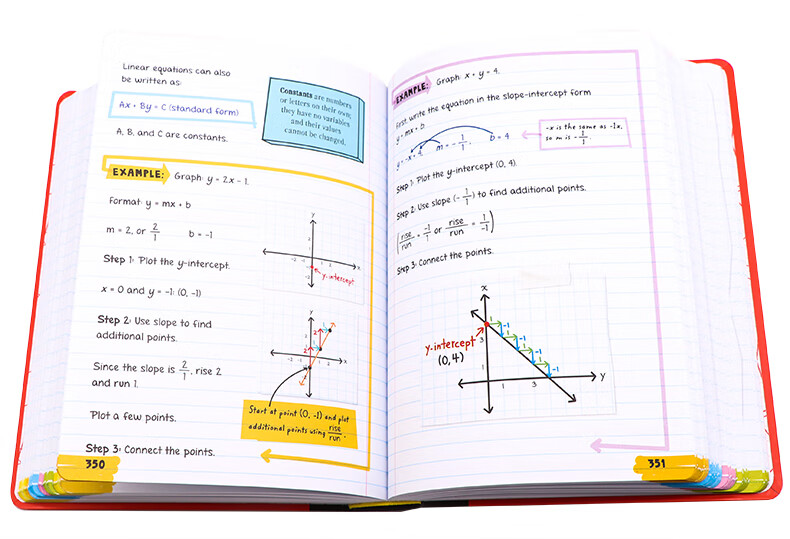 Linear equations can also
be written as:
Ax + By = C (standard form)
A, B, and C are constants.
Constants are numbers
or letters on their own;
they have no variables
and their values
cannot be changed.
EXAMPLE: Graph: y = 2x - 1.
Format: y = mx + b
m = 2, or 2/1 b = -1
Step 1: Plot the y-intercept.
x = 0 and y = -1: (0, -1)
y
-2 -1 1 2
x
y-intercept
Step 2: Use slope to find
additional points.
Since the slope is 2/1, rise 2
and run 1.
Plot a few points.
Step 3: Connect the points.
y
2
2
1
-2 -1 1 2
x
Start at point (0, -1) and plot
additional points using rise/run.
350
EXAMPLE: Graph: x + y = 4.
First, write the equation in the slope-intercept form
y = mx + b
y = -x + 4 m = -1/1, b = 4
-x is the same as -1x,
so m is -1/1.
Step 1: Plot the y-intercept (0, 4).
Step 2: Use slope (-1/1) to find additional points.
(rise/run = -1/1 or rise/run = 1/-1)
Step 3: Connect the points.
x
1
-1
1
-1
1
-1
1
-1
y-intercept
(0, 4)
3
1
1 3
y
351